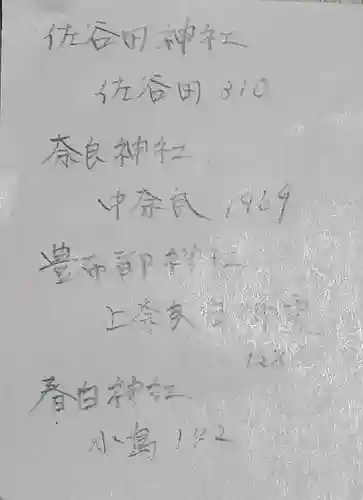 佐谷田神社
佐谷田 310
奈良神社
中奈良 1969
豊布都神社
上奈良
春日神社
小島